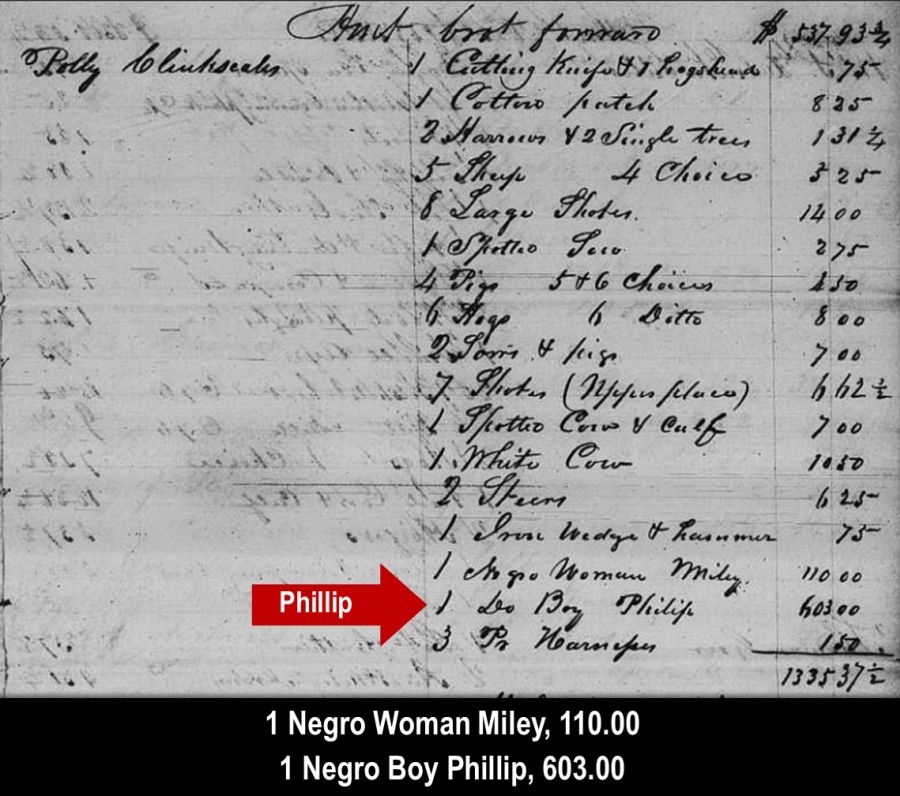 Amt brot forward $ 537 93 3/4
Polly Clinkscales 1 Cutting Knife & 1 hogshead 75
1 Cotton patch 8 25
2 Harrows & 2 Single trees 1 31 1/4
5 Sheep 4 Choice 5 25
8 Large Shotes. 14 00
1 Spotted Sow 2 75
4 Pigs 5 & 6 Choices 4 50
6 Hogs 6 Ditto 8 00
2 Sows & pigs 7 00
7 Shotes (Upper place) 6 62 1/2
1 Spotted Cow & Calf 7 00
1 White Cow 10 50
2 Steers 6 25
1 Iron Wedge & hammer 75
1 Negro Woman Miley. 110 00
Phillip
1 Do Boy Philip 603 00
3 Pr Harnesses 1 50
1335 37 1/2
1 Negro Woman Miley, 110.00
1 Negro Boy Phillip, 603.00